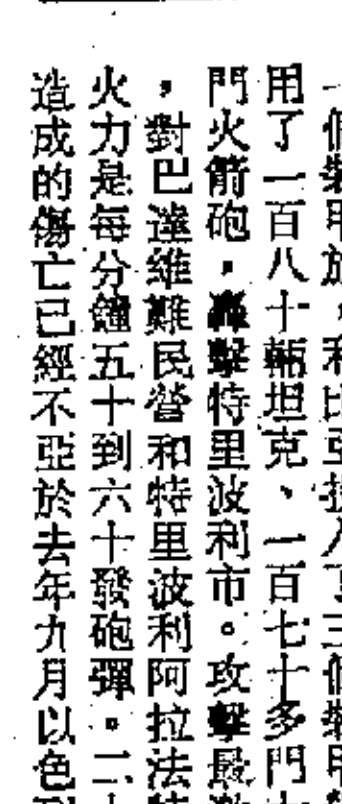 一個裝甲旅，利比亞投入了三個裝甲
用了一百八十輛坦克、一百七十多門
門火箭砲，轟擊特里波利市。攻擊最
，對巴達維難民營和特里波利阿拉法
火力是每分鐘五十到六十發砲彈。二
造成的傷亡已經不亞於去年九月以色